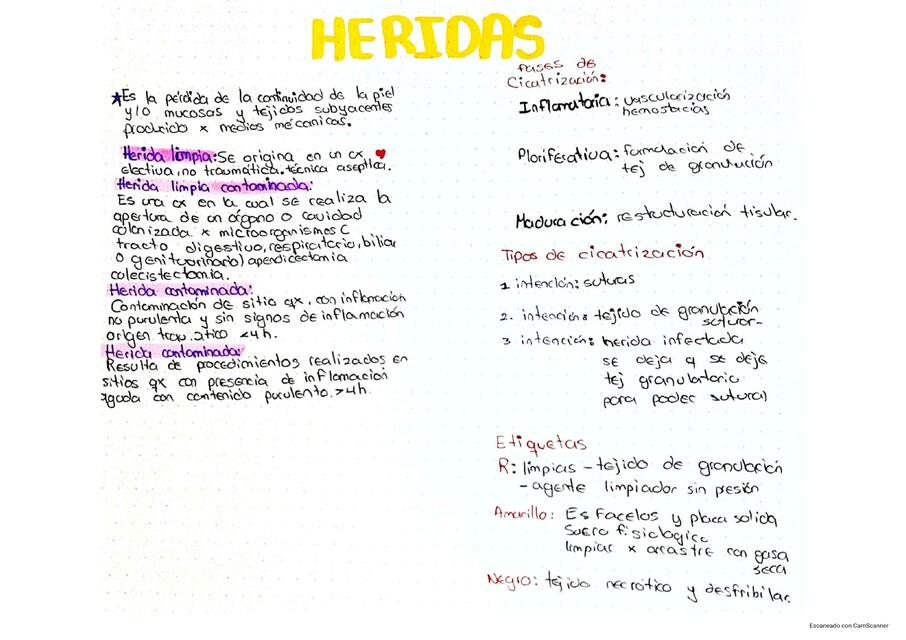 HERIDAS
★Es la pérdida de la continuidad de la piel
y/o mucosas y tejidos subyacentes
producido x medios mécanicos.
Herida limpia: Se origina en un cx
electiva, no traumática. técnica aséptica.
Herida limpia contaminada:
Es una cx en la cual se realiza la
apertura de un órgano o cavidad
colonizada x microorganismos C
tracto digestivo, respiratorio, biliar
o genitourinario) apendicectomia
colecistectomia.
Herida contaminada:
Contaminación de sitio qx, con inflamación
no purulenta y sin signos de inflamación
origen traumático <4h.
Herida contaminada:
Resulta de procedimientos realizados en
sitios qx con presencia de inflamación
aguda con contenido purulento. >4h
Fases de
Cicatrización:
Inflamatoria: vascularización
hemostacias
Ploriferativa: formulación de
tej de granulación
Maduración: restucturación tisular.
Tipos de cicatrización
1 intención: suturas
2. intención: tejido de granulación
suturar-
3 intención: herida infectada
se deja q se deje
tej granulatorio
para poder sutural
Etiquetas
R: limpias - tejido de granulación
- agente limpiador sin presión
Amarillo: Es Facelos y placa solida
Suero fisiologico
limpiar x arrastre con gasa
seca
Negro: tejido necrótico y desfribilar.
Escaneado con CamScanner